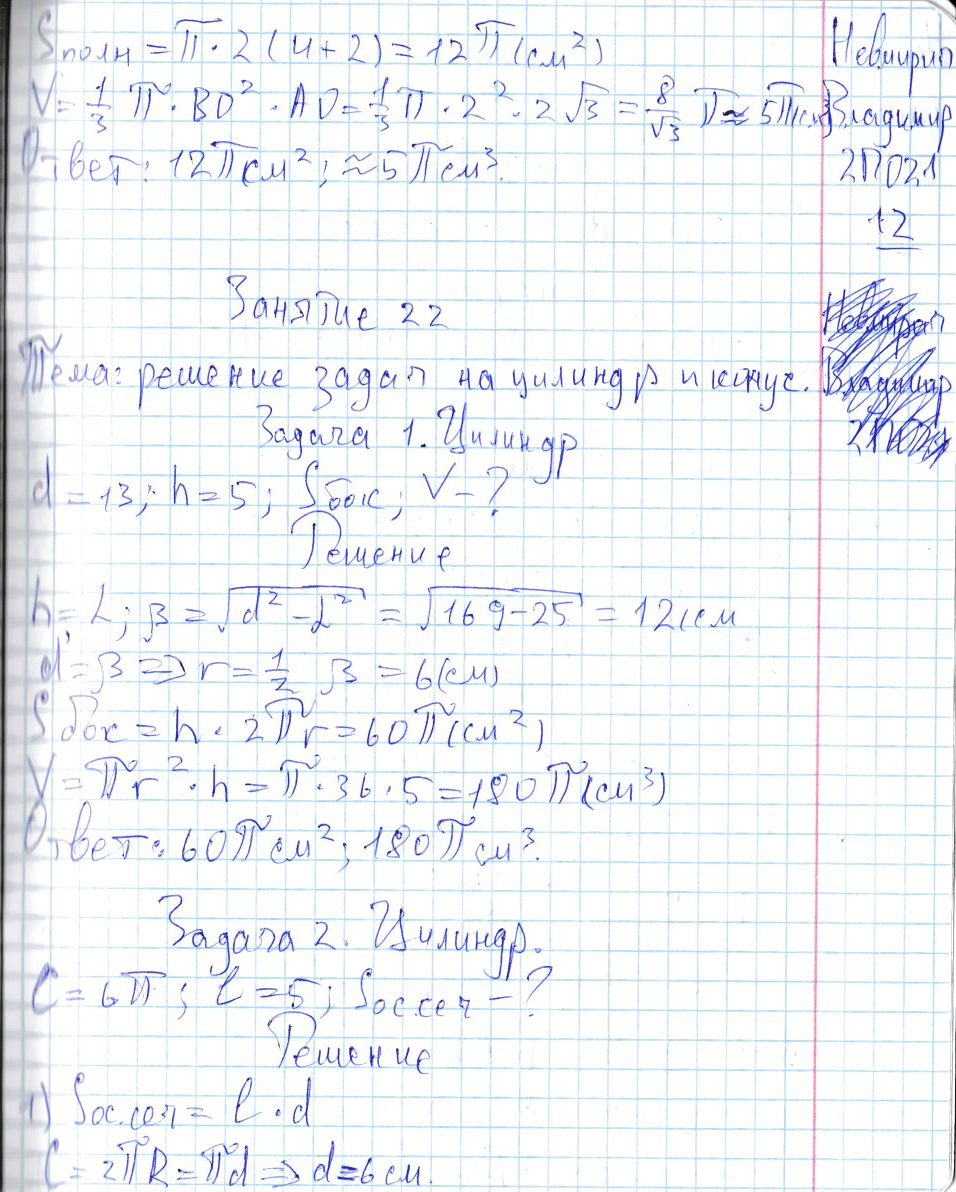 Sполн = π · 2 (4+2) = 12π (см²)
V = 1/3 π · BO² · AO = 1/3 π · 2² · 2√3 = 8/√3 π ≈ 5π см³
Ответ: 12π см²; ≈ 5π см³.
Владимир
2П021
12
Занятие 22
Тема: решение задач на цилиндр и конус.
Задача 1. Цилиндр
d = 13; h = 5; Sбок; V - ?
Решение
h = L; β = √(d² - L²) = √(169-25) = 12 (см
d' = β => r = 1/2 β = 6 (см)
Sбок = h · 2πr = 60π (см²)
V = πr² · h = π · 36 · 5 = 180π (см³)
Ответ: 60π см²; 180π см³.
Задача 2. Цилиндр.
C = 6π; l = 5; Sос.сеч - ?
Решение
1) Sос.сеч = l · d
C = 2πR = πd => d = 6 см.